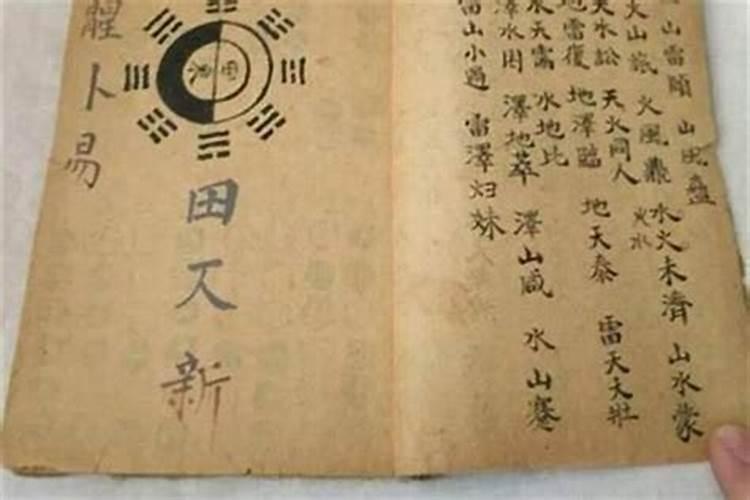 山雷頤 山風蠱
火山旅 火風鼎 水火未濟 山水蒙
火水
天水訟 天火同人
地雷復 地澤臨 地天泰 雷天天壯
水天需 水地比
澤水困 澤地萃 澤山咸 水山蹇
雷山小過 雷澤归妹
田 新
卜易